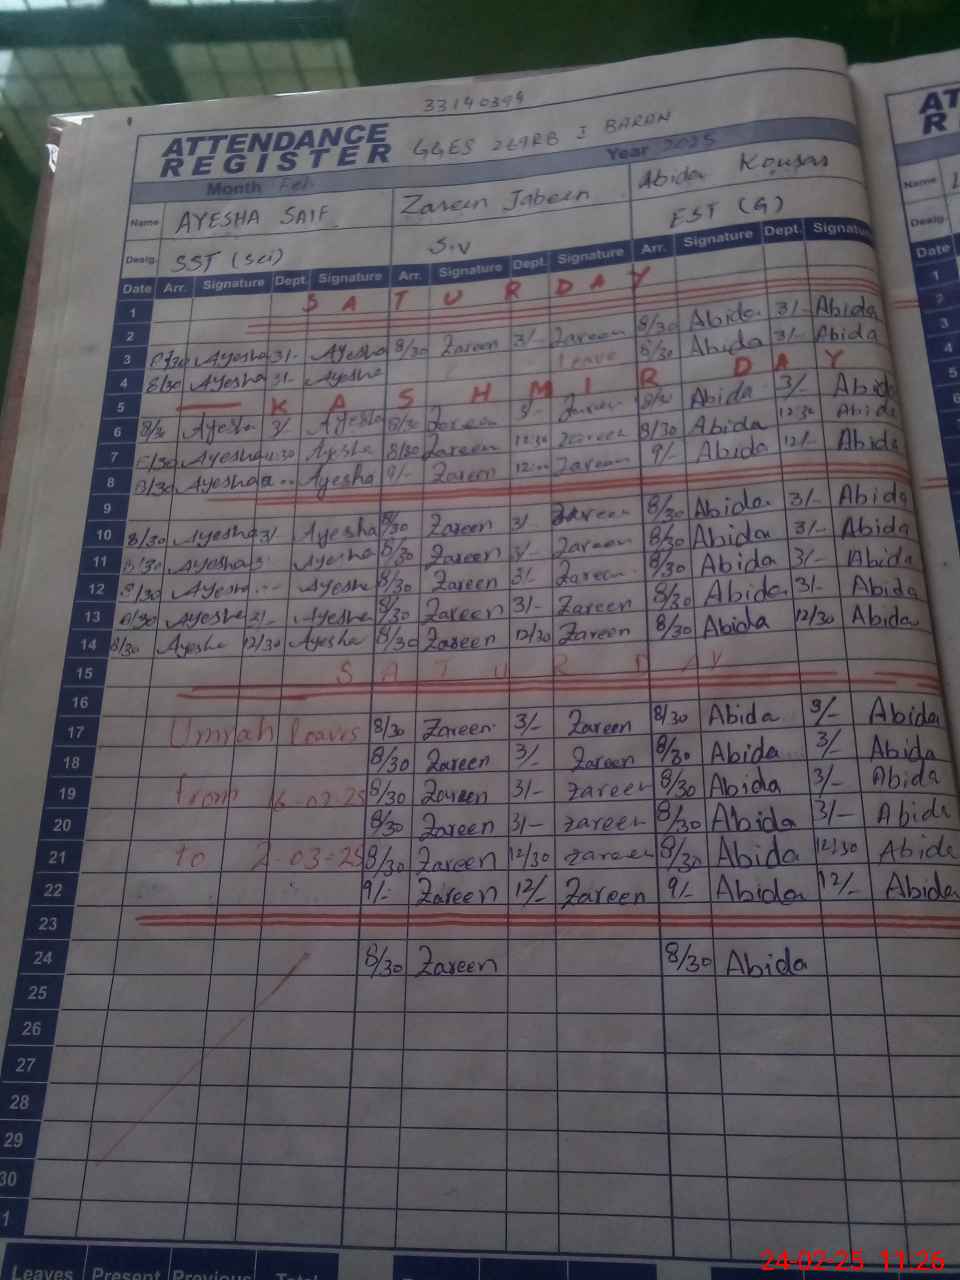 33140394
ATTENDANCE REGISTER GGES 229RB I BARAN
Month Feb Year 2025
Name AYESHA SAIF Zareen Jabeen Abida Kousar
Desig. SST (Sci) S.V EST (G)
Date Arr. Signature Dept. Signature Arr. Signature Dept. Signature Arr. Signature Dept. Signature
1 SATURDAY
2
3 8/30 Ayesha 3/- Ayesha 8/30 Zareen 3/- Zareen 8/30 Abida 3/- Abida
4 8/30 Ayesha 3/- Ayesha Leave 8/30 Abida 3/- Abida
5 KASHMIR DAY
6 8/30 Ayesha 3/ Ayesha 8/30 Zareen 3/- Zareen 8/30 Abida 3/- Abida
7 8/30 Ayesha 12:30 Ayesha 8/30 Zareen 12:30 Zareen 8/30 Abida 12:30 Abida
8 8/30 Ayesha Ayesha 9/- Zareen Zareen 9/- Abida 12/- Abida
9
10 8/30 Ayesha 3/- Ayesha 8/30 Zareen 3/- Zareen 8/30 Abida 3/- Abida
11 8/30 Ayesha 3 Ayesha 8/30 Zareen 3/- Zareen 8/30 Abida 3/- Abida
12 8/30 Ayesha Ayesha 8/30 Zareen 3/- Zareen 8/30 Abida 3/- Abida
13 8/30 Ayesha 3/- Ayesha 8/30 Zareen 3/- Zareen 8/30 Abida 3/- Abida
14 8/30 Ayesha 12/30 Ayesha 8/30 Zareen 12/30 Zareen 8/30 Abida 12/30 Abida
15 SATURDAY
16
17 Umrah leaves 8/30 Zareen 3/- Zareen 8/30 Abida 3/- Abida
18 8/30 Zareen 3/- Zareen 8/30 Abida 3/- Abida
19 from 16-02-25 8/30 Zareen 3/- Zareen 8/30 Abida 3/- Abida
20 8/30 Zareen 3/- Zareen 8/30 Abida 3/- Abida
21 to 2-03-25 8/30 Zareen 12/30 Zareen 8/30 Abida 12/30 Abida
22 9/- Zareen 12/- Zareen 9/- Abida 12/- Abida
23
24 8/30 Zareen 8/30 Abida
25
26
27
28
29
30
1
Leaves Present Previous Total
AT
R
Name
Desig.
Date
1
2
3
4
5
24-02-25 11:26